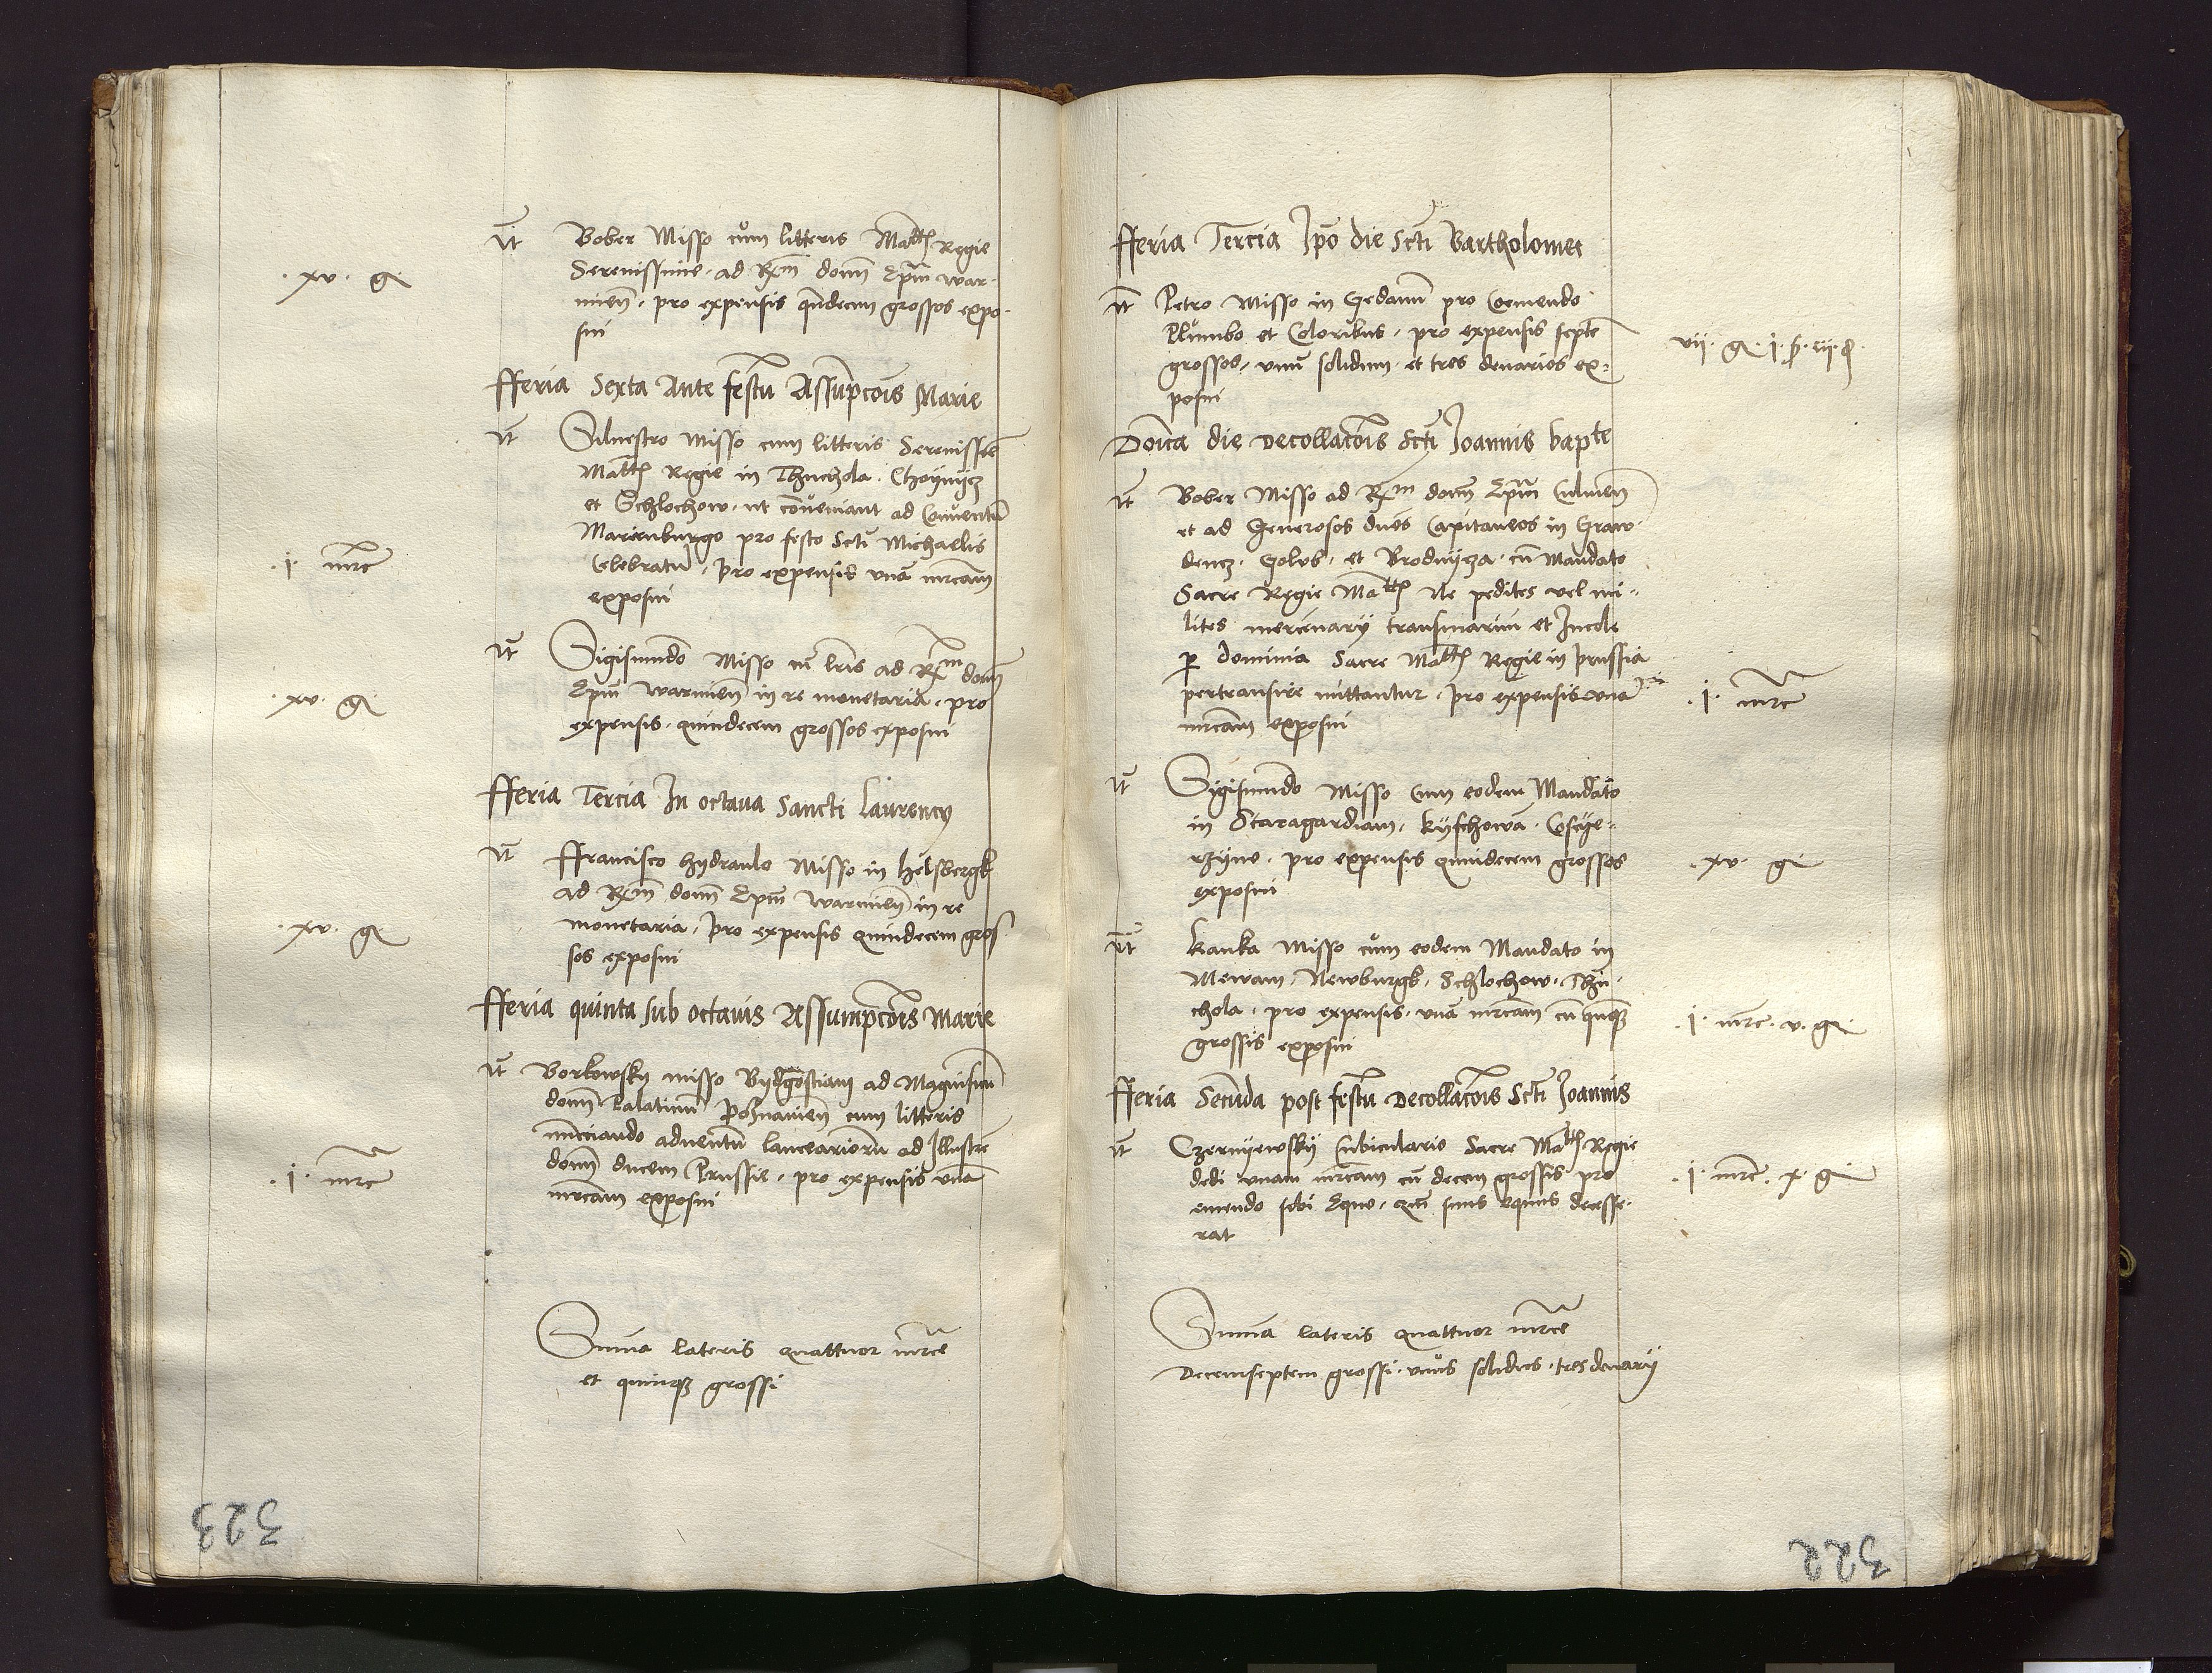 It Bober Misso cum litteris Mattꝭ Regie
Serenissime · ad Rm̄ dom̄ Ep̄m war-
mien̄ · pro expensis qn̄decim grossos expo-
sui
·xv· gͬ
fferia Sexta Ante festū Assumpcōis Marie
It Siluestro Misso cum litteris Serenissīe
Mattꝭ Regie in Thuchola · Choyniicz
et Schlochow · ut cōueniant ad Conuentū
Marienburgo pro festo Sctī Michaelis
Celebratū · pro expensis vnā mrcam
exposui
·j· mrc
It Sigismundo Misso cū lr̄is ad Rm̄ dom̄
Ep̄m Warmien̄ in re monetaria · pro
expensis · quindecem grossos exposui
·xv· gͬ
fferia Tercia In octaua Sancti Laurency
It ffrancisco hydraulo Misso in helsbergk
ad Rm̄ dom̄ Ep̄m warmien̄ in re
monetaria · pro expensis quindecem gros
sos exposui
·xv· gͬ
fferia quinta sub octauis Assumpcōis Marie
It Borkowsky misso Bydgostiam ad Magnificū
dom̄ Palatinū poznanien̄ cum litteris
nūnciando aduentū lanceariorū ad Illustrē
dom̄ ducem Prussie · pro expensis vnā
mrcam exposui
·j· mrc
Sum̄a lateris quattuor mrce
et quinqꝫ grossi
323
fferia Tercia Ipō die Sctī Bartholomei
It Petro Misso in Gedanū pro Coemendo
Plumbo et Coloribus · pro expensis septē
grossos · vnū solidum · et tres denarios ex-
posui
vij · gͬ · j · ẜ · iij · ₰
Domīca die decollacōis Sctī Joannis bapte
It Bober Misso ad Rm̄ dom̄ Ep̄m Culmen̄
et ad Generosos dn̄os Capitaneos in Graw-
dencz · Golvb · et Brodniicza · cū Mandato
Sacre Regie Mattꝭ Ne pedites vel mi-
lites mercenarÿ transmarini et Incole
ꝑ dominia Sacre Mattꝭ Regie in prussia
pertransire mittantur · pro expensis vnā
mrcam exposui
·j· mrc
It Sigismundo Misso Cum eodem Mandato
in Staragardiam · kyschowā · Cosczie-
rzyne · pro expensis quindecem grossos
exposui
·xv· gͬ
It kanka Misso cum eodem Mandato in
Mewam · Newburgk · Schlochow · Thu-
chola · pro expensis · vnā mrcam cū quīqꝫ
grossis exposui
·j· mrc · v · gͬ
fferia Secūda post festū decollacōis Sctī Joannis
It Czerniiewskÿ Cubiculario Sacre Mattꝭ Regie
dedi vnam mrcam cū decem grossis pro
emendo sibi Equo · qm̄ suus equus decesse-
rat
·j· mrc · x · gͬ
Sum̄a lateris quattuor mrce
Decemseptem grossi · vnus solidus · tres denarÿ
322